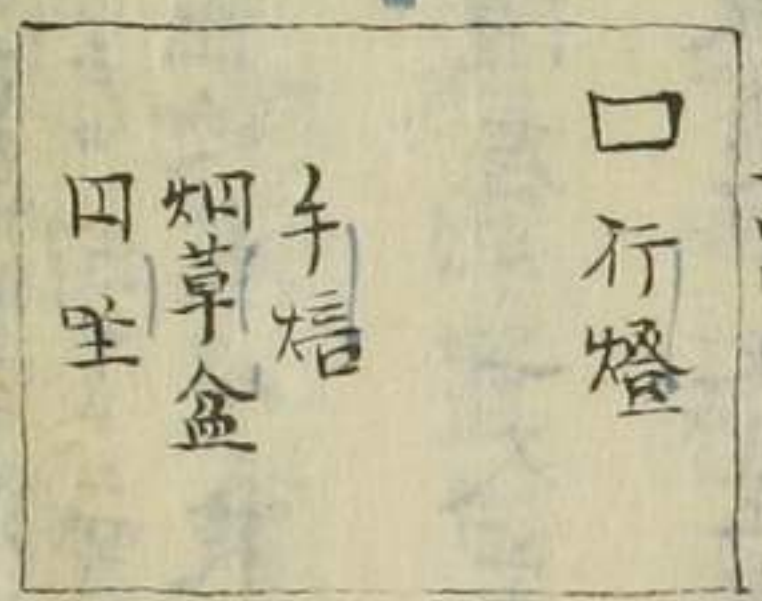 □行燈
手焙
烟草盆
円座